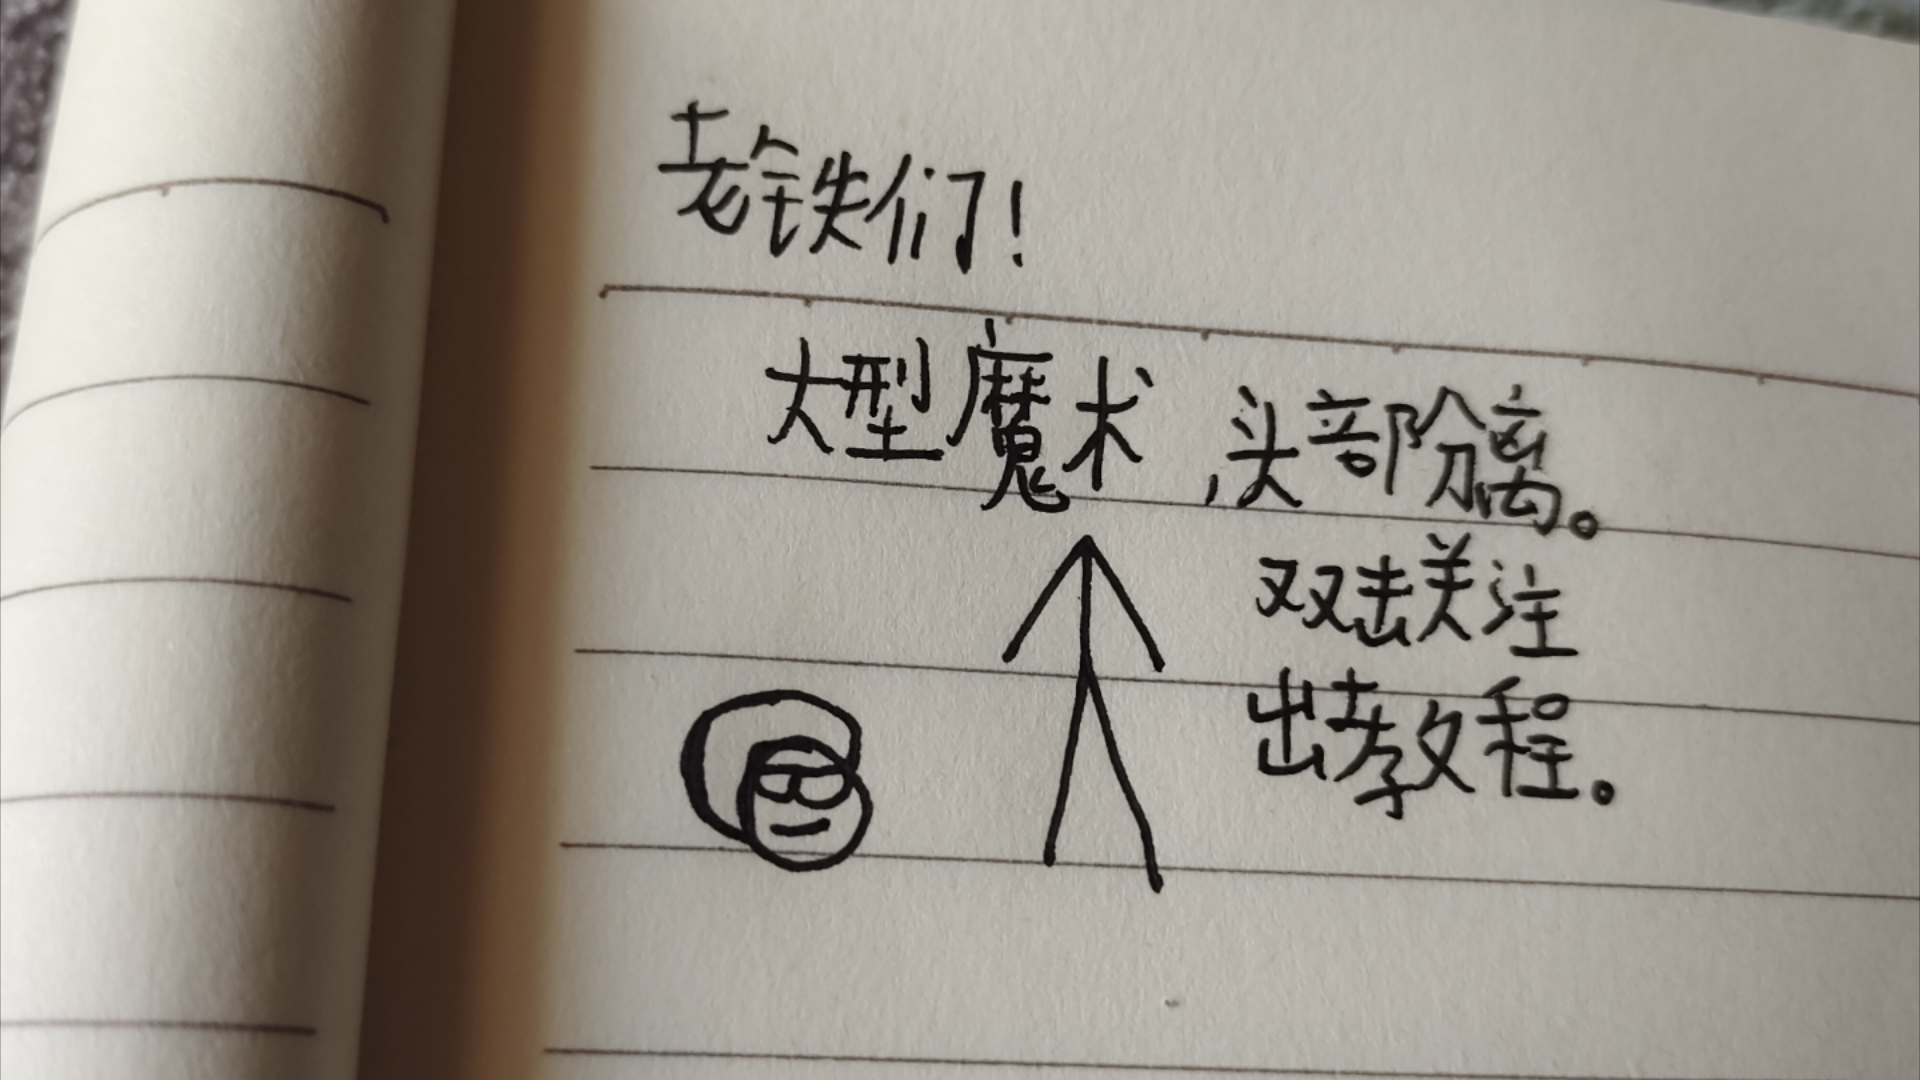 老铁们!
大型魔术,头部分离。
双击关注
出教程。